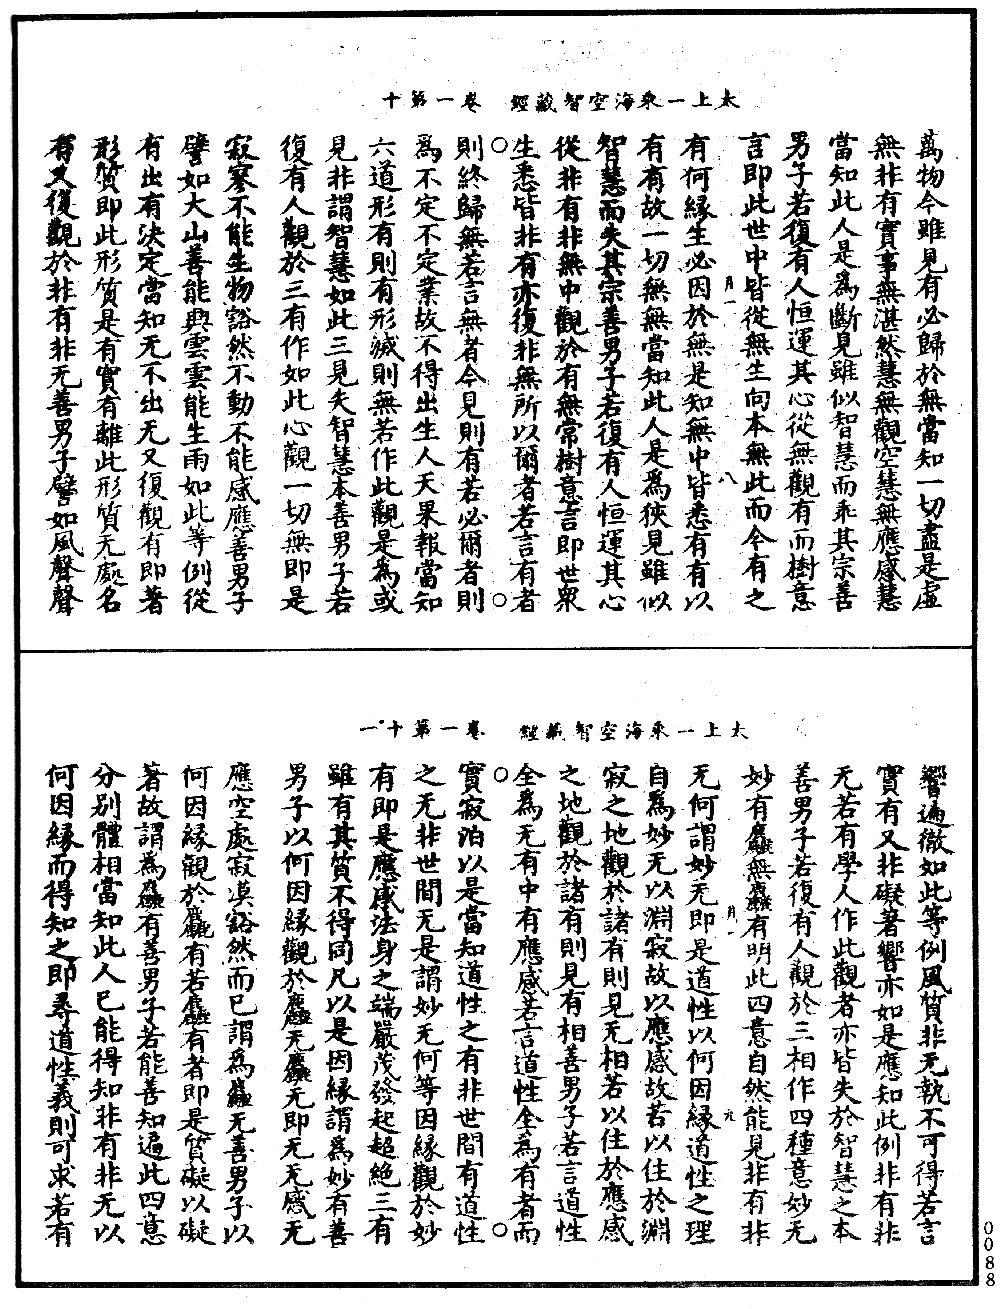 太上一乘海空智藏經　卷一第十
萬物今雖見有必歸於無當知一切盡是虛
無非有實事無湛然慧無觀空慧無應感慧
當知此人是為斷見雖似智慧而乖其宗善
男子若復有人恒運其心從無觀有而樹意
言即此世中皆從無生向本無此而今有之
月一
八
有何緣生必因於無是知無中皆悉有有以
有有故一切無無當知此人是為狹見雖似
智慧而失其宗善男子若復有人恒運其心
從非有非無中觀於有無常樹意言即世衆
生悉皆非有亦復非無所以爾者若言有者
則終歸無若言無者今見則有若必爾者則
為不定不定業故不得出生人天果報當知
六道形有則有形滅則無若作此觀是為或
見非謂智慧如此三見失智慧本善男子若
復有人觀於三有作如此心觀一切無即是
寂寥不能生物豁然不動不能感應善男子
譬如大山善能興雲雲能生雨如此等例從
有出有決定當知无不出无又復觀有即著
形質即此形質是有實有離此形質无處名
有又復觀於非有非无善男子譬如風聲聲
太上一乘海空智藏經　卷一第十一
響遍徹如此等例風質非无執不可得若言
實有又非礙著響亦如是應知此例非有非
无若有學人作此觀者亦皆失於智慧之本
善男子若復有人觀於三相作四種意妙无
妙有麤無麤有明此四意自然能見非有非
月一
九
无何謂妙无即是道性以何因緣道性之理
自為妙无以淵寂故以應感故若以住於淵
寂之地觀於諸有則見无相若以住於應感
之地觀於諸有則見有相善男子若言道性
全為无有中有應感若言道性全為有者而
實寂泊以是當知道性之有非世間有道性
之无非世間无是謂妙无何等因緣觀於妙
有即是應感法身之端嚴茂發起超絶三有
雖有其質不得同凡以是因緣謂為妙有善
男子以何因緣觀於麤无麤无即无无感无
應空處寂漠豁然而已謂為麤无善男子以
何因緣觀於麤有若麤有者即是質礙以礙
著故謂為麤有善男子若能善知遍此四意
分別體相當知此人已能得知非有非无以
何因緣而得知之即尋道性義則可求若有
0088